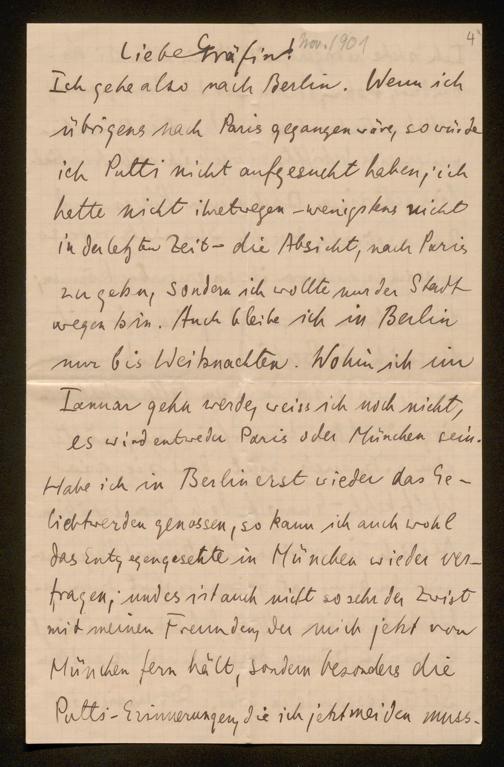 Nov. 1901
4
Liebe Gräfin!
Ich gehe also nach Berlin. Wenn ich
übrigens nach Paris gegangen wäre, so würde
ich Putti nicht aufgesucht haben; ich
hatte nicht ihretwegen – wenigstens nicht
in der letzten Zeit – die Absicht, nach Paris
zu gehn, sondern ich wollte nur der Stadt
wegen hin. Auch bleibe ich in Berlin
nur bis Weihnachten. Wohin ich im
Januar gehn werde, weiss ich noch nicht,
es wird entweder Paris oder München sein.
Habe ich in Berlin erst wieder das Ge-
liebtwerden genossen, so kann ich auch wohl
das Entgegengesetzte in München wieder ver-
tragen; und es ist auch nicht so sehr der Zwist
mit meinen Freunden, der mich jetzt von
München fern hält, sondern besonders die
Putti-Erinnerungen, die ich jetzt meiden muss.